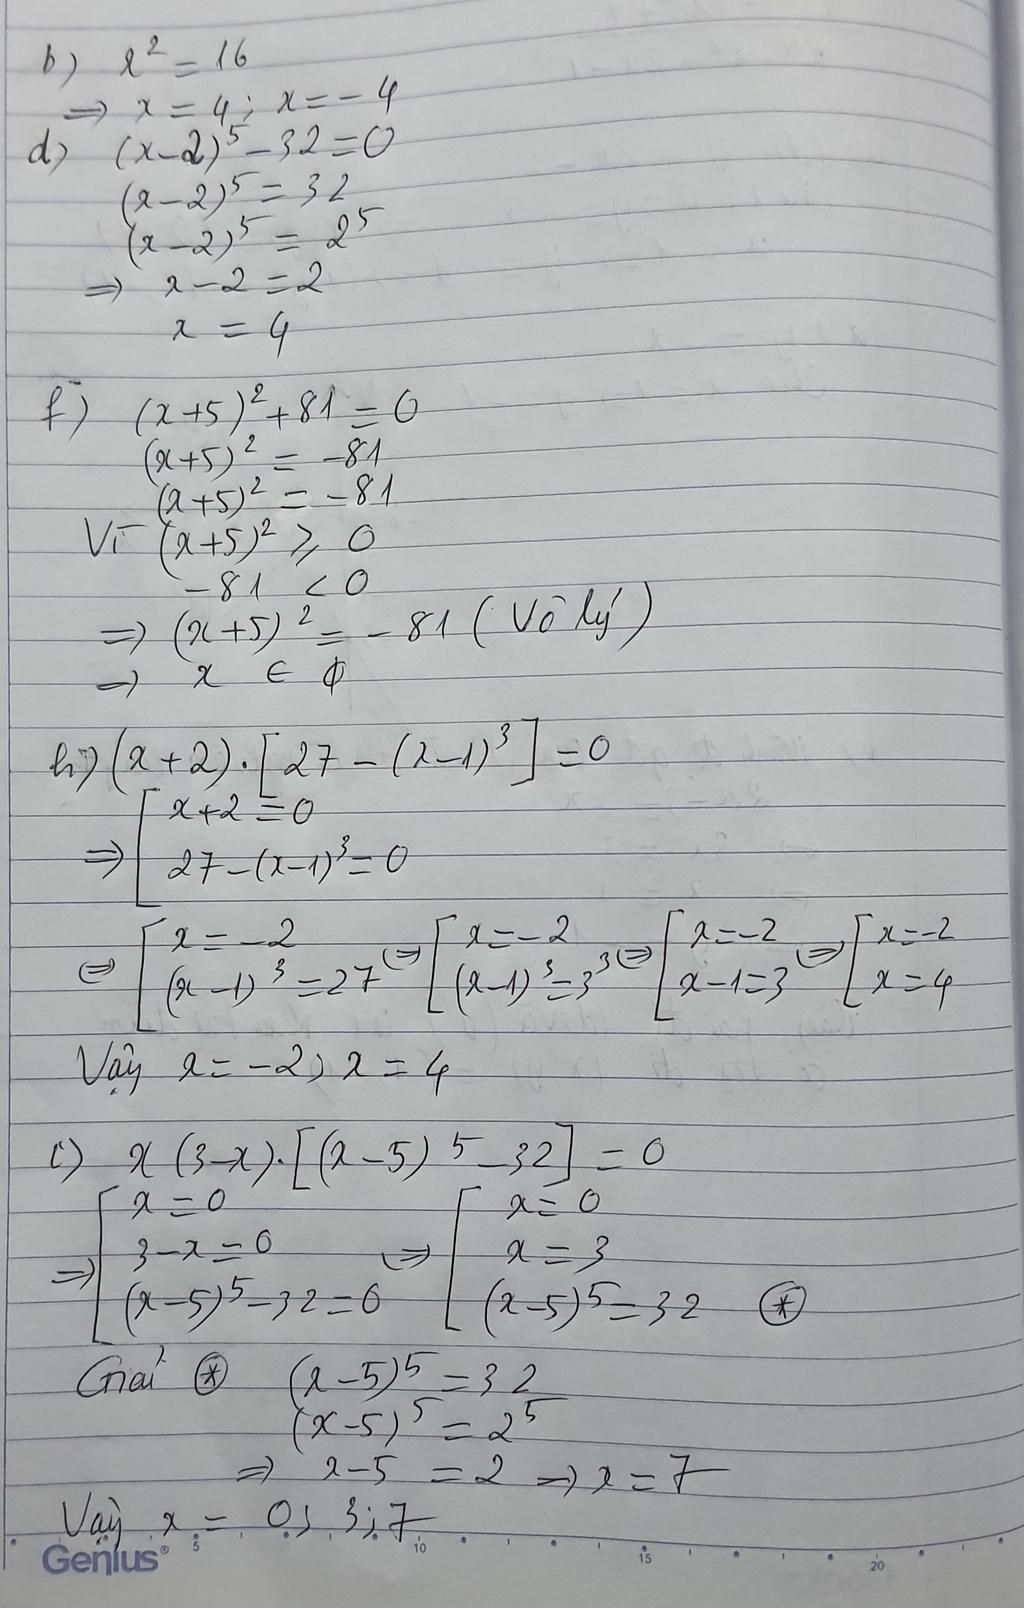 b) x² = 16
=> x = 4; x = -4
d) (x-2)⁵ - 32 = 0
(x-2)⁵ = 32
(x-2)⁵ = 2⁵
=> x-2 = 2
x = 4
f) (x+5)² + 81 = 0
(x+5)² = -81
(x+5)² = -81
Vì (x+5)² ⩾ 0
-81 < 0
=> (x+5)² = -81 (Vô lý)
=> x ∈ ϕ
h) (x+2)·[27-(x-1)³] = 0
=> [ x+2 = 0
27-(x-1)³ = 0
⇔ [ x = -2 ⇔ [ x = -2 ⇔ [ x = -2 ⇔ [ x = -2
(x-1)³ = 27 (x-1)³ = 3³ x-1 = 3 x = 4
Vậy x = -2; x = 4
i) x(3-x)·[(x-5)⁵-32] = 0
=> [ x = 0 ⇔ [ x = 0
3-x = 0 x = 3
(x-5)⁵-32 = 0 (x-5)⁵ = 32 ⊛
Giải ⊛ (x-5)⁵ = 32
(x-5)⁵ = 2⁵
=> x-5 = 2 => x = 7
Vậy x = 0; 3; 7
Genius® 5 10 15 20